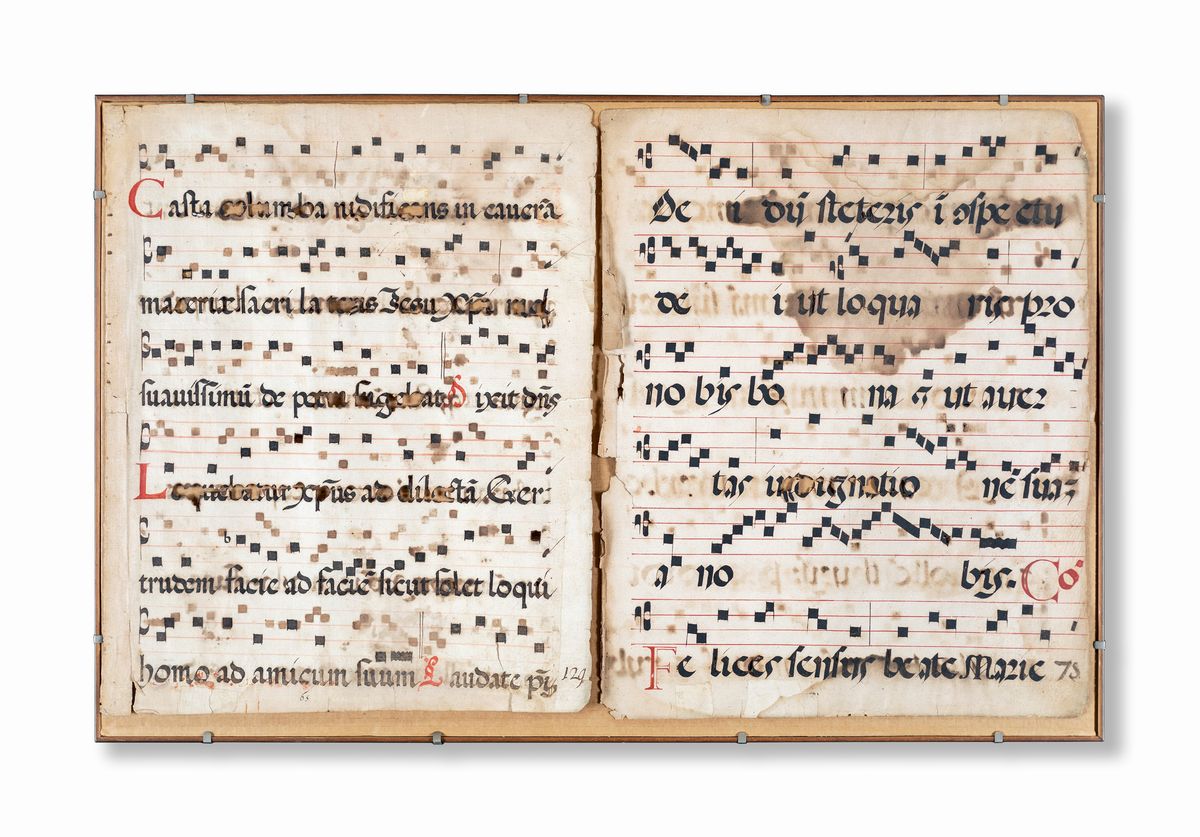 Casta columba nidificans in cauerã
maceriæ sacri lateris Jesu Xp̃i mel
suauissimũ de petra sugebat. Dixit dñs
Loquebatur xp̃us ad dilectã Exer
trudem facie ad faciẽ sicut solet loqui
homo ad amicum suum Laudate
129
65
De i dũ steteris ĩ ɔspectu
de i ut loqua ris pro
no bis bo na & ut auer
tas indignatio nẽ suã
a no bis. Co
Fe lices sensus beate Marie 73